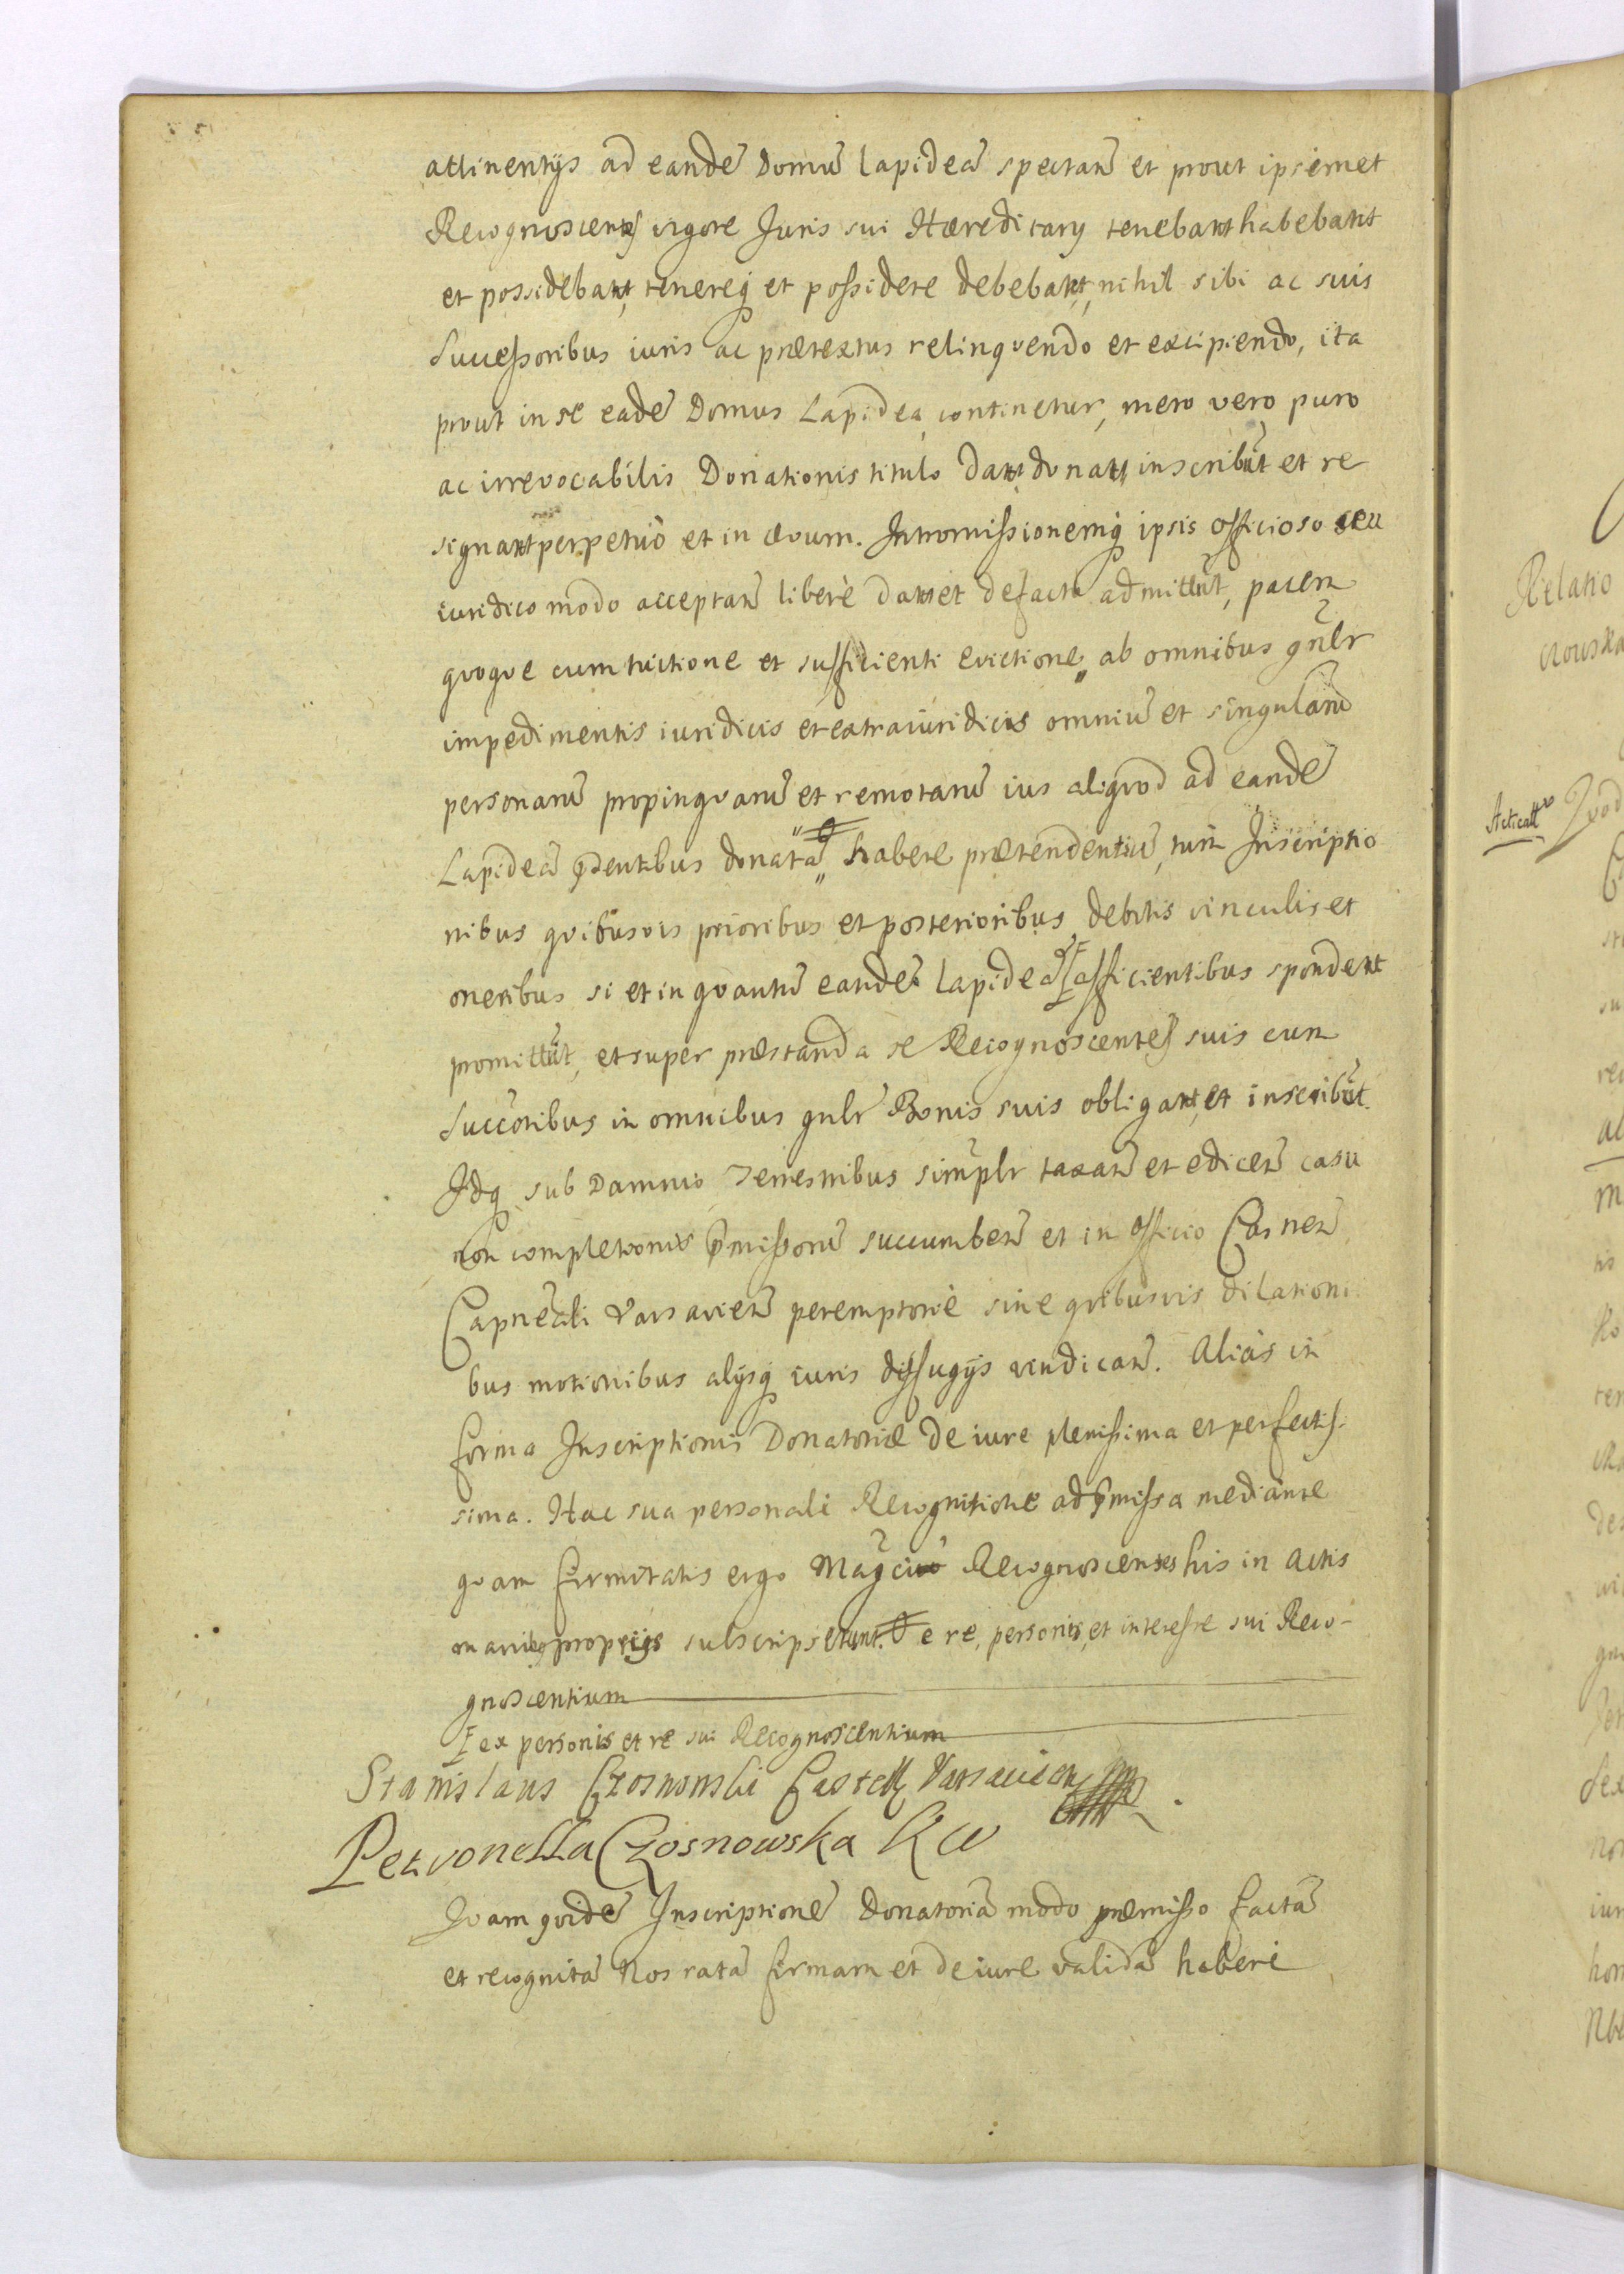 attinentijs ad eandē Domū lapideā spectañ et prout ipsemet
Recognoscentes vigore Juris sui Hæreditarij tenebant habebant
et possidebant, tenereq́ et possidere debebant, nihil sibi ac suis
Successoribus iuris ac prætextus relinquendo et excipiendo, ita
prout in se eadē Domus Lapidea continetur, mero vero puro
ac irrevocabilis Donationis titulo Dant donant inscribūt et re
signant perpetuò et in ævum. Intromissionemq́ ipsis officioso seu
iuridico modo acceptañ liberè Dant et defacto admittūt, pacem
quoque cum tuitione et sufficienti evictione,, ab omnibus gñlr
impedimentis iuridicis et extraiuridicis omniū et singularū
personarū propinquarū et remotarū ius aliquod ad eandē
Lapideā p̄sentibus donatā,, habere prætendentiū, tum Inscriptio
nibus quibusvis prioribus et posterioribus debitis vinculis et
oneribus si et in quantū eandem lapideā afficientibus spondent
promittūt, et super præstanda se Recognoscentes suis cum
Succōribus in omnibus gnlr Bonis suis obligant, et inscribūt.
Idq́ sub Damnis Terrestribus simplr taxañ et ediceñ casu
non completionis p̄missorū succumbeñ et in Officio Casñeñ
Capneāli Varsavieñ peremptoriè sine quibusvis dilationi
bus motionibus alijsq́ iuris diffugijs vindicañ. Aliàs in
forma Inscriptionis Donatoriæ de iure plenissima et perfectis-
sima. Hac sua personali Recognitione ad p̄missa mediante
quam firmitatis ergo Mag̃ci Recognoscentes his in Actis
manibus proprijs subscripserunt. De re, personis, et interesse sui Reco-
gnoscentium
ex personis et re sui Recognoscentium
Stanislaus Czosnowski Castell Varsavien
Petronella Czosnowska KW
Quam quidē Inscriptionē Donatoriā modo præmisso factā
et recognitā Nos ratā firmam et de iure validā haberi
Relatio
Acticatt
Quod